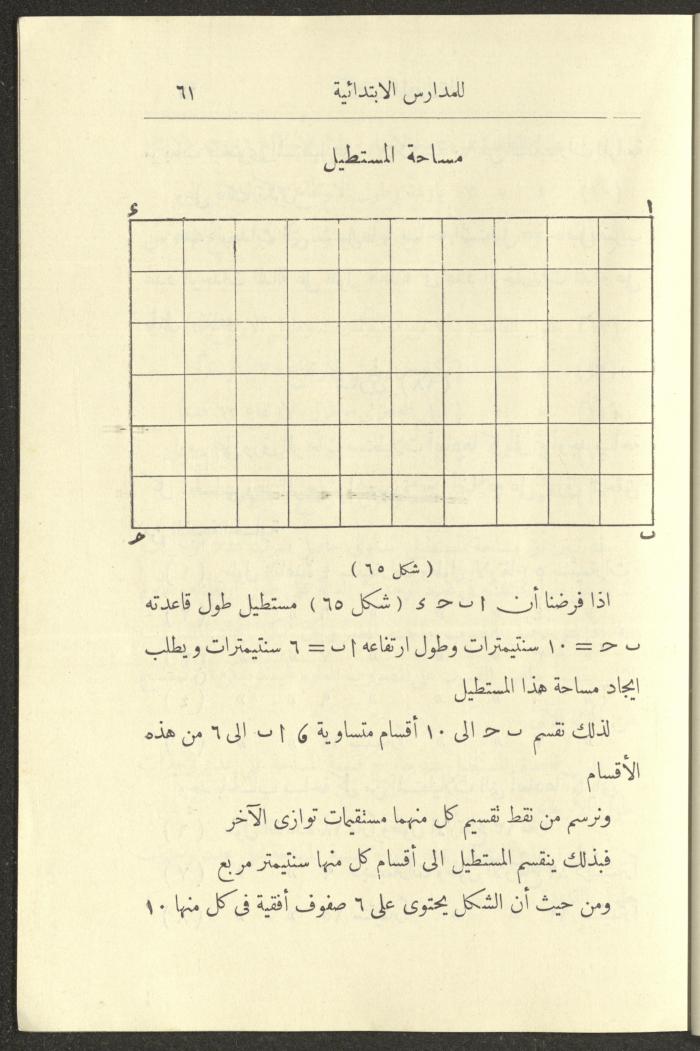 للمدارس الابتدائية ٦١
مساحة المستطيل
ا ء
ب ح
( شكل ٦٥ )
اذا فرضنا أن ا ب ح ء ( شكل ٦٥ ) مستطيل طول قاعدته
ب ح = ١٠ سنتيمترات وطول ارتفاعه ا ب = ٦ سنتيمترات ويطلب
ايجاد مساحة هذا المستطيل
لذلك نقسم ب ح الى ١٠ أقسام متساوية ، ا ب الى ٦ من هذه
الأقسام
ونرسم من نقط تقسيم كل منهما مستقيمات توازى الآخر
فبذلك ينقسم المستطيل الى أقسام كل منها سنتيمتر مربع
ومن حيث أن الشكل يحتوى على ٦ صفوف أفقية فى كل منها ١٠